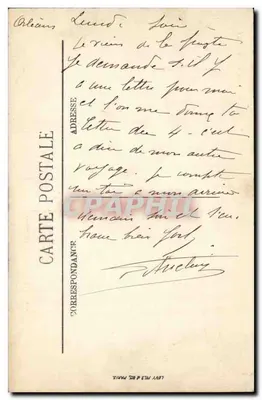 Orléans Lundi soir
Je viens de la poste
Je demande s'il y
a une lettre pour moi
et l'on me donne ta
lettre du 4 - c'est
a dire de mon autre
voyage. je compte
a mon arrivée
demain soir et t'em
brasse bien fort
CARTE POSTALE
ADRESSE
CORRESPONDANCE
CPAPHIL